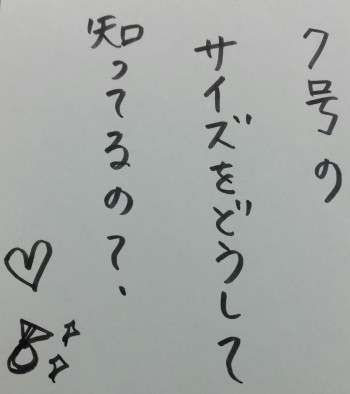 7号の
サイズをどうして
知ってるの？